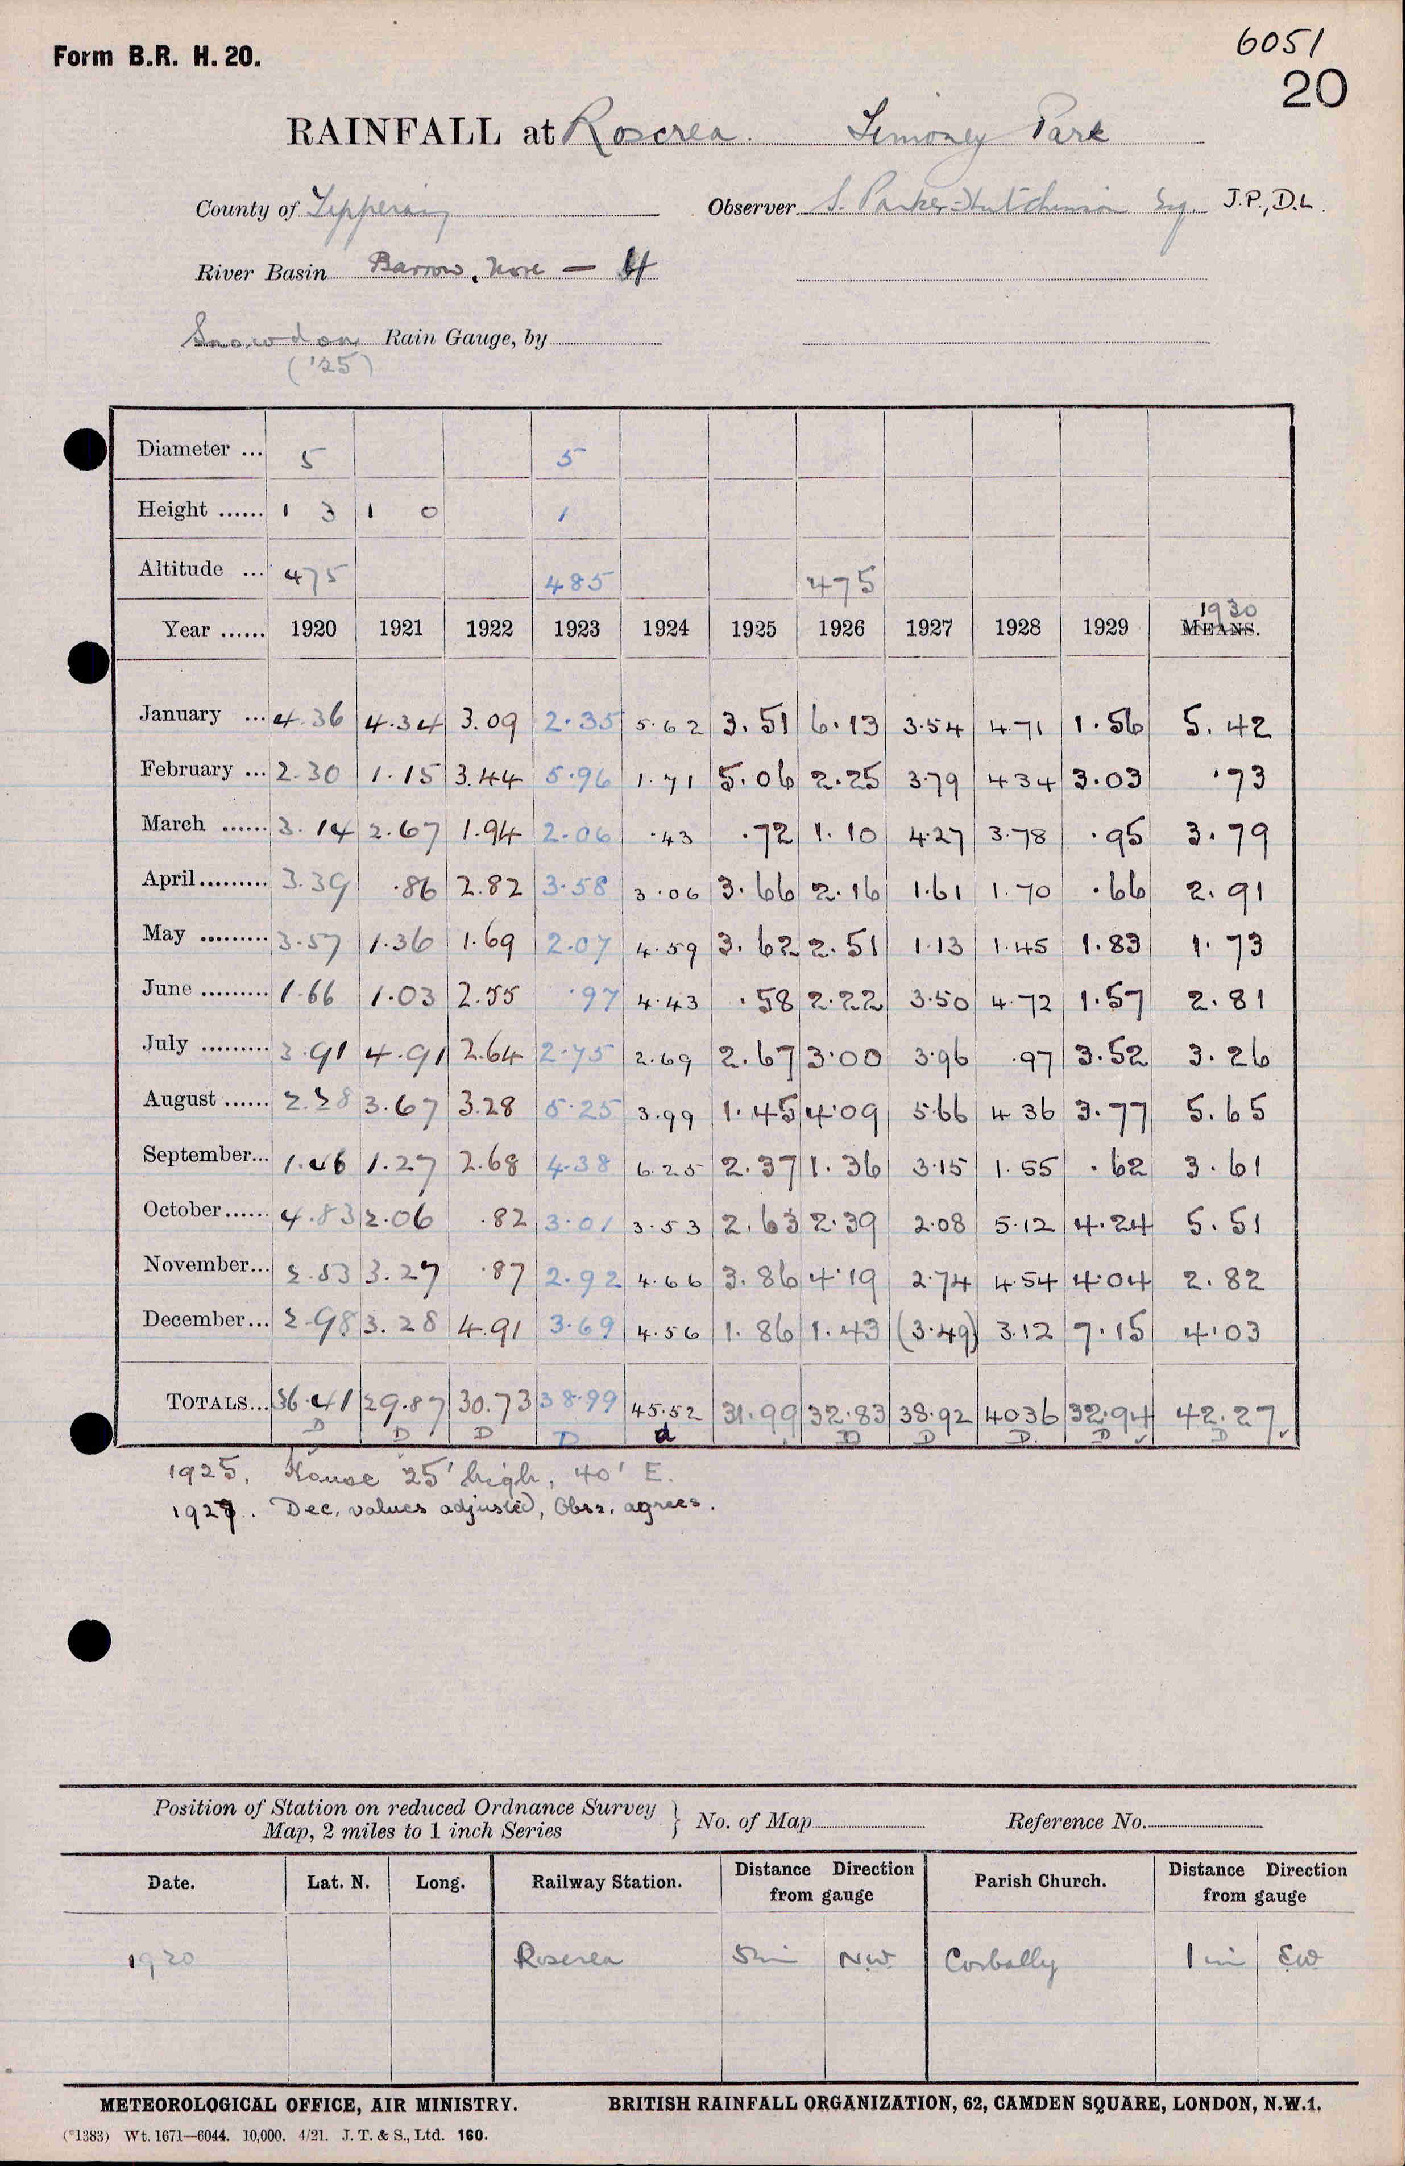 6051
Form B.R. H. 20.
20
RAINFALL at Roscrea. Timoney Park
County of Tipperary Observer S. Parker-Hutchinson Esq. J.P., D.L.
River Basin Barrow, Nore — 4
Snowdon Rain Gauge, by
('25)
Diameter ... 5 5
Height ...... 1 3 1 0 1
Altitude ... 475 485 475
1930
Year ...... 1920 1921 1922 1923 1924 1925 1926 1927 1928 1929 MEANS.
January ... 4.36 4.34 3.09 2.35 5.62 3.51 6.13 3.54 4.71 1.56 5.42
February ... 2.30 1.15 3.44 5.96 1.71 5.06 2.25 3.79 4.34 3.03 .73
March ...... 3.14 2.67 1.94 2.06 .43 .72 1.10 4.27 3.78 .95 3.79
April......... 3.39 .86 2.82 3.58 3.06 3.66 2.16 1.61 1.70 .66 2.91
May ......... 3.57 1.36 1.69 2.07 4.59 3.62 2.51 1.13 1.45 1.83 1.73
June ......... 1.66 1.03 2.55 .97 4.43 .58 2.22 3.50 4.72 1.57 2.81
July ......... 3.91 4.91 2.64 2.75 2.69 2.67 3.00 3.96 .97 3.52 3.26
August ...... 2.28 3.67 3.28 5.25 3.99 1.45 4.09 5.66 4.36 3.77 5.65
September... 1.46 1.27 2.68 4.38 6.25 2.37 1.36 3.15 1.55 .62 3.61
October...... 4.83 2.06 .82 3.01 3.53 2.63 2.39 2.08 5.12 4.24 5.51
November... 2.53 3.27 .87 2.92 4.66 3.86 4.19 2.74 4.54 4.04 2.82
December... 2.98 3.28 4.91 3.69 4.56 1.86 1.43 (3.49) 3.12 7.15 4.03
TOTALS... 36.41 29.87 30.73 38.99 45.52 31.99 32.83 38.92 40.36 32.94 42.27
D D D D d D D D D D
1925. House 25' high, 40' E.
1927. Dec. values adjusted, Obsr. agrees.
Position of Station on reduced Ordnance Survey
Map, 2 miles to 1 inch Series } No. of Map Reference No.
Date. Lat. N. Long. Railway Station. Distance Direction from gauge Parish Church. Distance Direction from gauge
1920 Roscrea 5mi NW Corbally 1 mi SW
METEOROLOGICAL OFFICE, AIR MINISTRY. BRITISH RAINFALL ORGANIZATION, 62, CAMDEN SQUARE, LONDON, N.W.1.
(*1383) Wt. 1671—6044. 10,000. 4/21. J. T. & S., Ltd. 160.